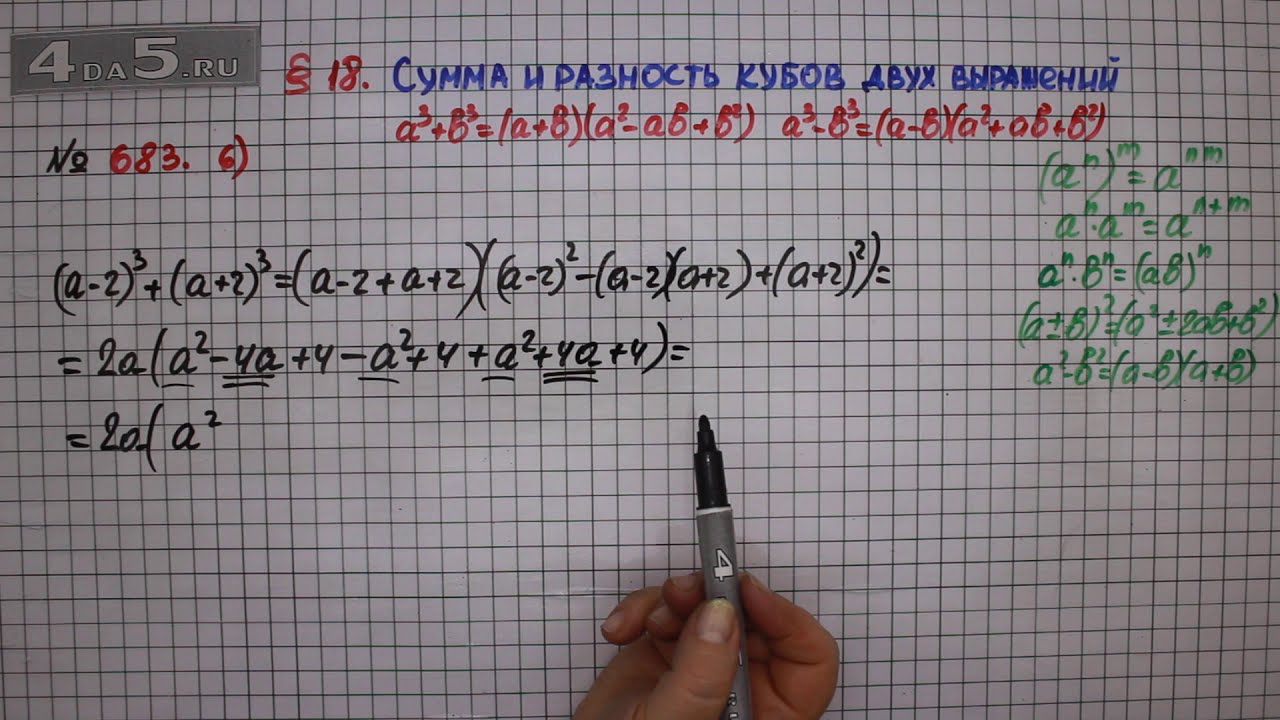 4DA5.RU
§ 18. Сумма и разность кубов двух выражений
a³+b³=(a+b)(a²-ab+b²) a³-b³=(a-b)(a²+ab+b²)
№ 683. 6)
(aⁿ)ᵐ=aⁿᵐ
aⁿ·aᵐ=aⁿ⁺ᵐ
aⁿ·bⁿ=(ab)ⁿ
(a±b)²=(a²±2ab+b²)
a²-b²=(a-b)(a+b)
(a-2)³+(a+2)³=(a-2+a+2)((a-2)²-(a-2)(a+2)+(a+2)²)=
=2a(a²-4a+4-a²+4+a²+4a+4)=
=2a(a²
4